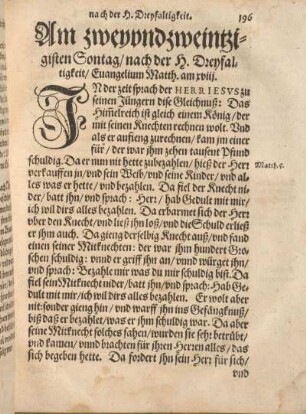 nach der H. Dreyfaltigkeit.
196
Am zweyvndzweintzi-
gisten Sontag/ nach der H. Dreyfal-
tigkeit/ Euangelium Matth. am xviij.
IN der zeit sprach der HERR IESVS zu
seinen Jüngern dise Gleichnuß: Das
Himelreich ist gleich einem König/ der
mit seinen Knechten rechnen wolt. Vnd
als er anfieng zurechnen/ kam jm einer
für/ der war jhm zehen tausent Pfund
schuldig. Da er nun nit hette zubezahlen/ hieß der Herr
Matth. 5.
verkauffen jn/ vnd sein Weib/ vnd seine Kinder/ vnd al-
les was er hette/ vnd bezahlen. Da fiel der Knecht ni-
der/ batt jhn/ vnd sprach: Herr/ hab Gedult mit mir/
ich wil dirs alles bezahlen. Da erbarmet sich der Herr
vber den Knecht/ vnd ließ jhn loß/ vnd die Schuld erließ
er jhm auch. Da gieng derselbig Knecht auß/ vnd fand
einen seiner Mitknechten: der war jhm hundert Gro-
schen schuldig: vnnd er griff jhn an/ vnnd würget jhn/
vnd sprach: Bezahle mir was du mir schuldig bist. Da
fiel sein Mitknecht nider/ batt jhn/ vnd sprach: Hab Ge-
dult mit mir/ ich wil dirs alles bezahlen. Er wolt aber
nit: sonder gieng hin/ vnd warff jhn ins Gefängknuß/
biß daß er bezahlet/ was er jhm schuldig war. Da aber
seine Mitknecht solches sahen/ wurden sie sehr betrübt/
vnd kamen/ vnnd brachten für jhren Herren alles/ das
sich begeben hette. Da fordert jhn sein Herr für sich/
vnd